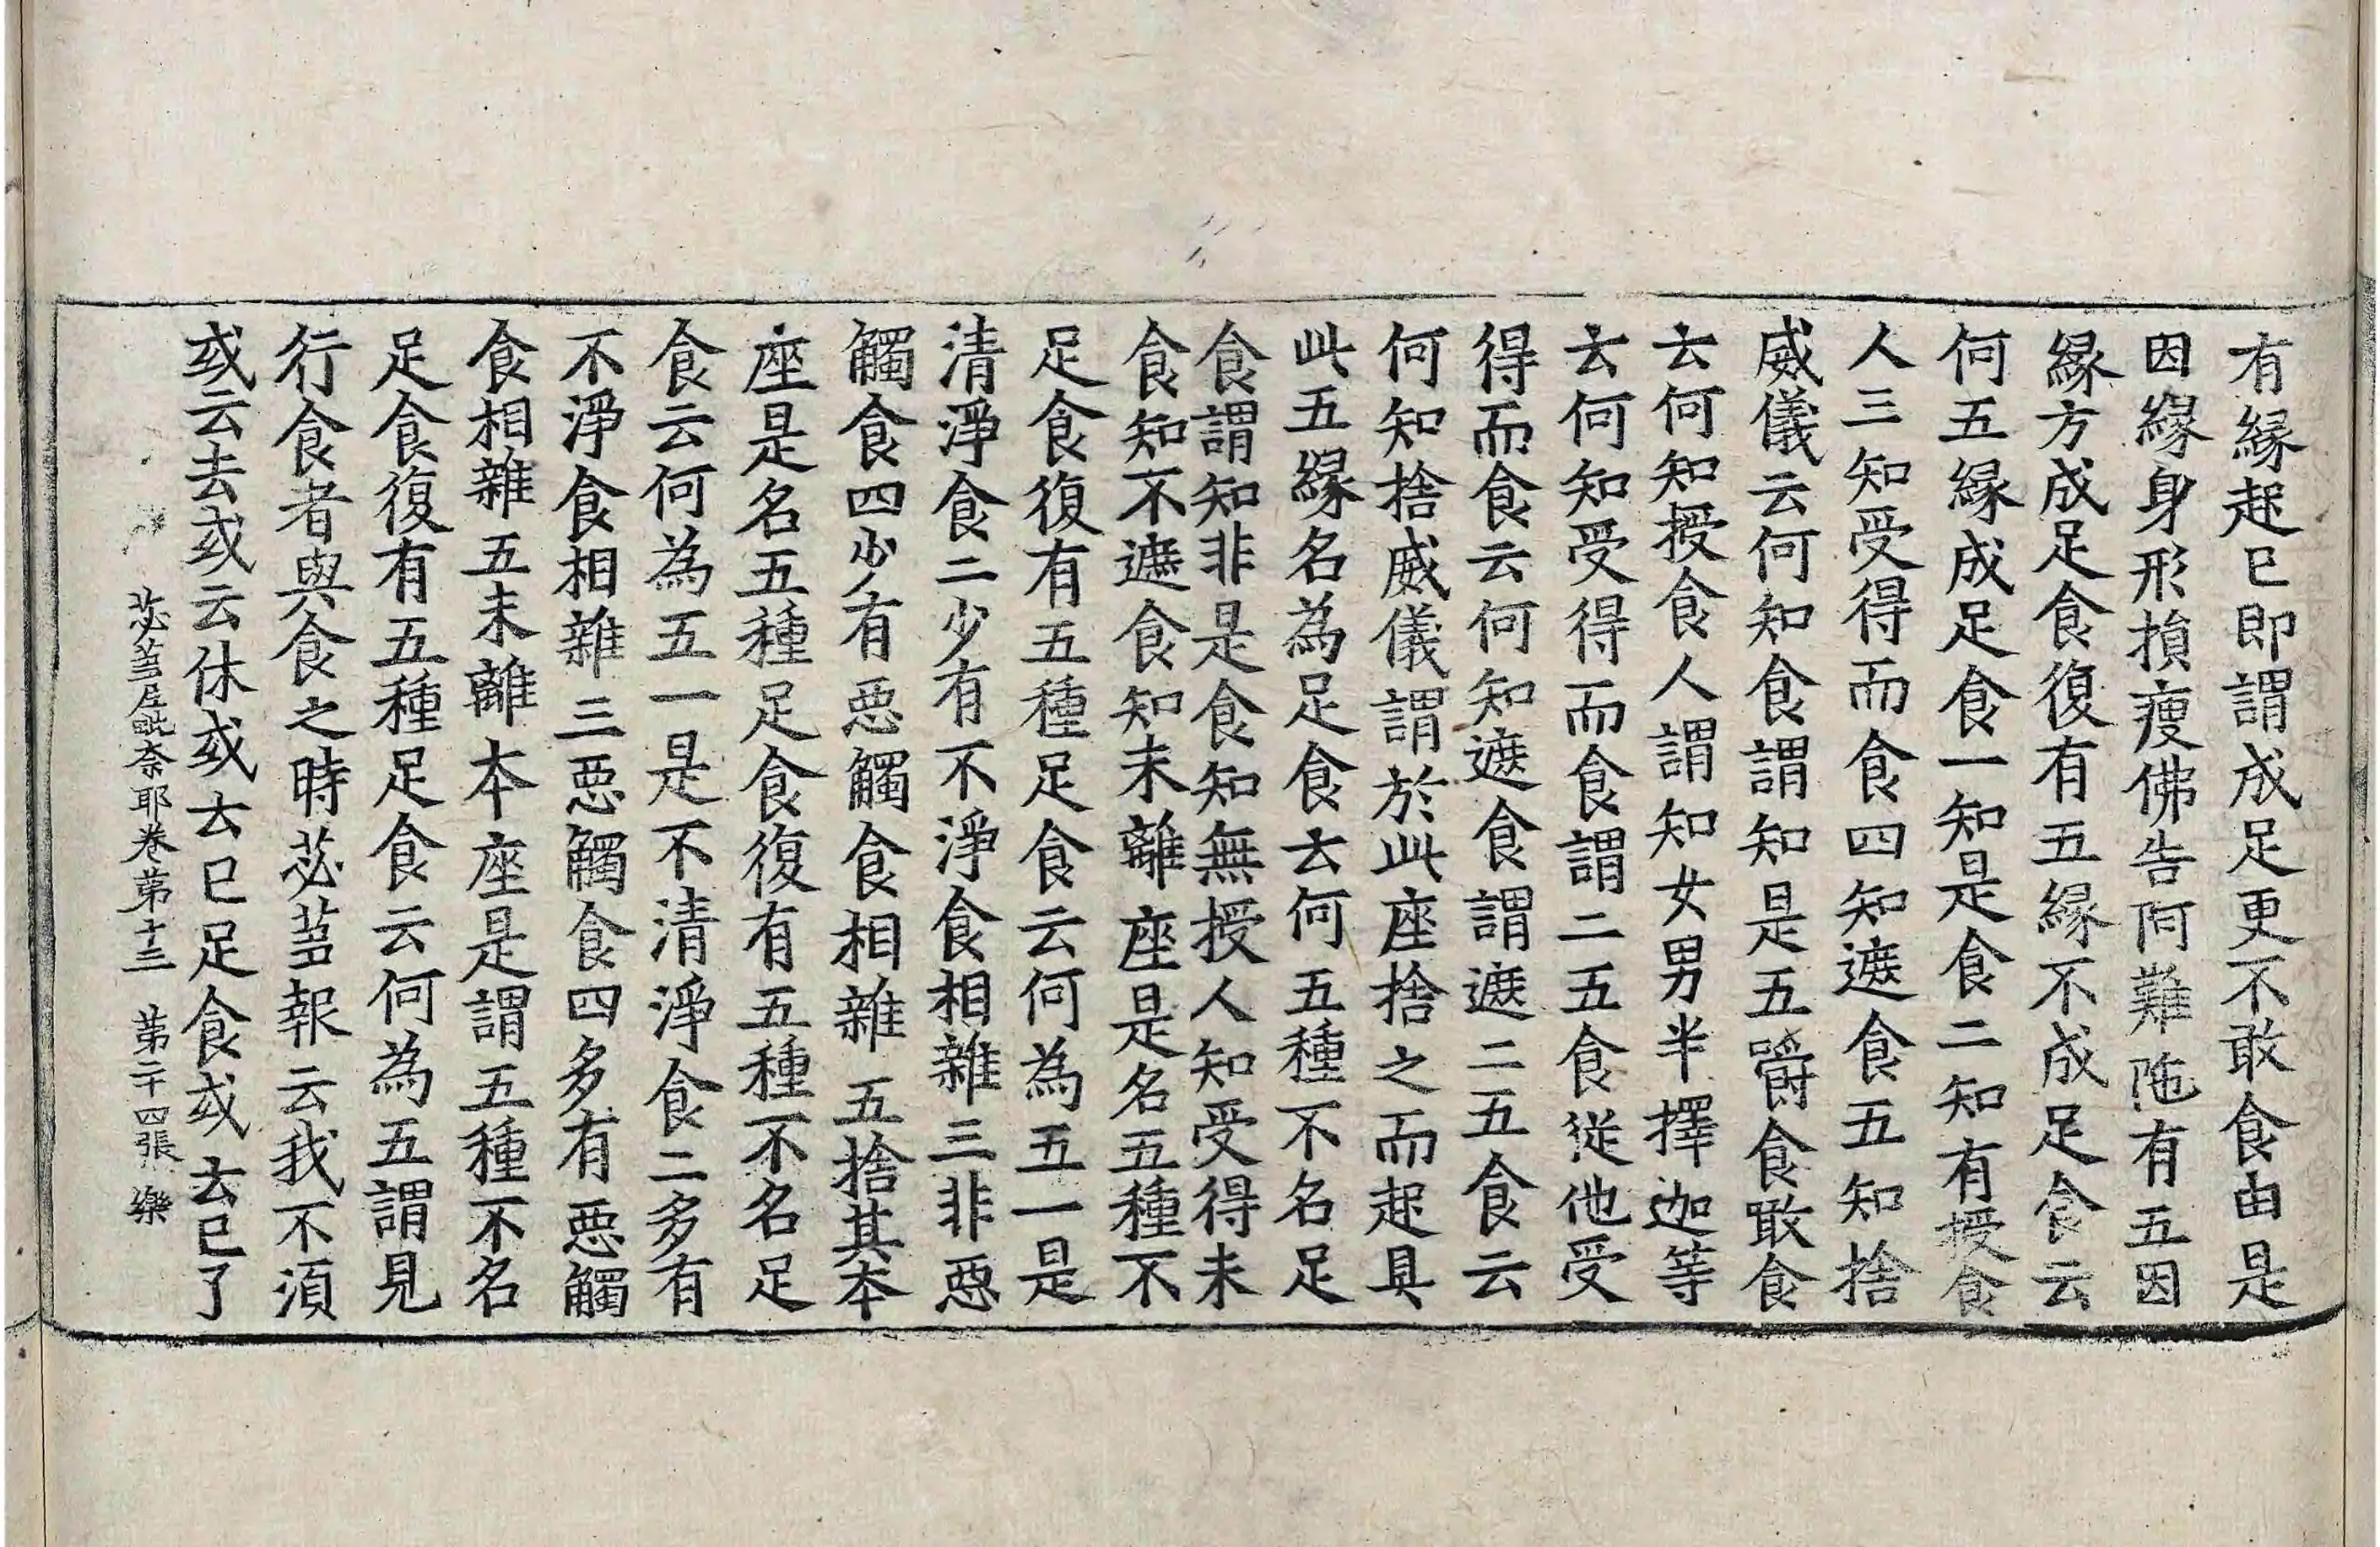 有縁起已即謂成足更不敢食由是
因縁身形損瘦佛告阿難陁有五因
縁方成足食復有五縁不成足食云
何五縁成足食一知是食二知有授食
人三知受得而食四知遮食五知捨
威儀云何知食謂知是五嚼食敢食
云何知授食人謂知女男半擇迦等
云何知受得而食謂二五食從他受
得而食云何知遮食謂遮二五食云
何知捨威儀謂於此座捨之而起具
此五縁名為足食云何五種不名足
食謂知非是食知無授人知受得未
食知不遮食知未離座是名五種不
足食復有五種足食云何為五一是
清淨食二少有不淨食相雜三非惡
觸食四少有惡觸食相雜五捨其本
座是名五種足食復有五種不名足
食云何為五一是不清淨食二多有
不淨食相雜三惡觸食四多有惡觸
食相雜五未離本座是謂五種不名
足食復有五種足食云何為五謂見
行食者與食之時苾芻報云我不湏
或云去或云休或云已足食或云已了
苾芻尼毗奈耶卷第十三 第二十四張 樂